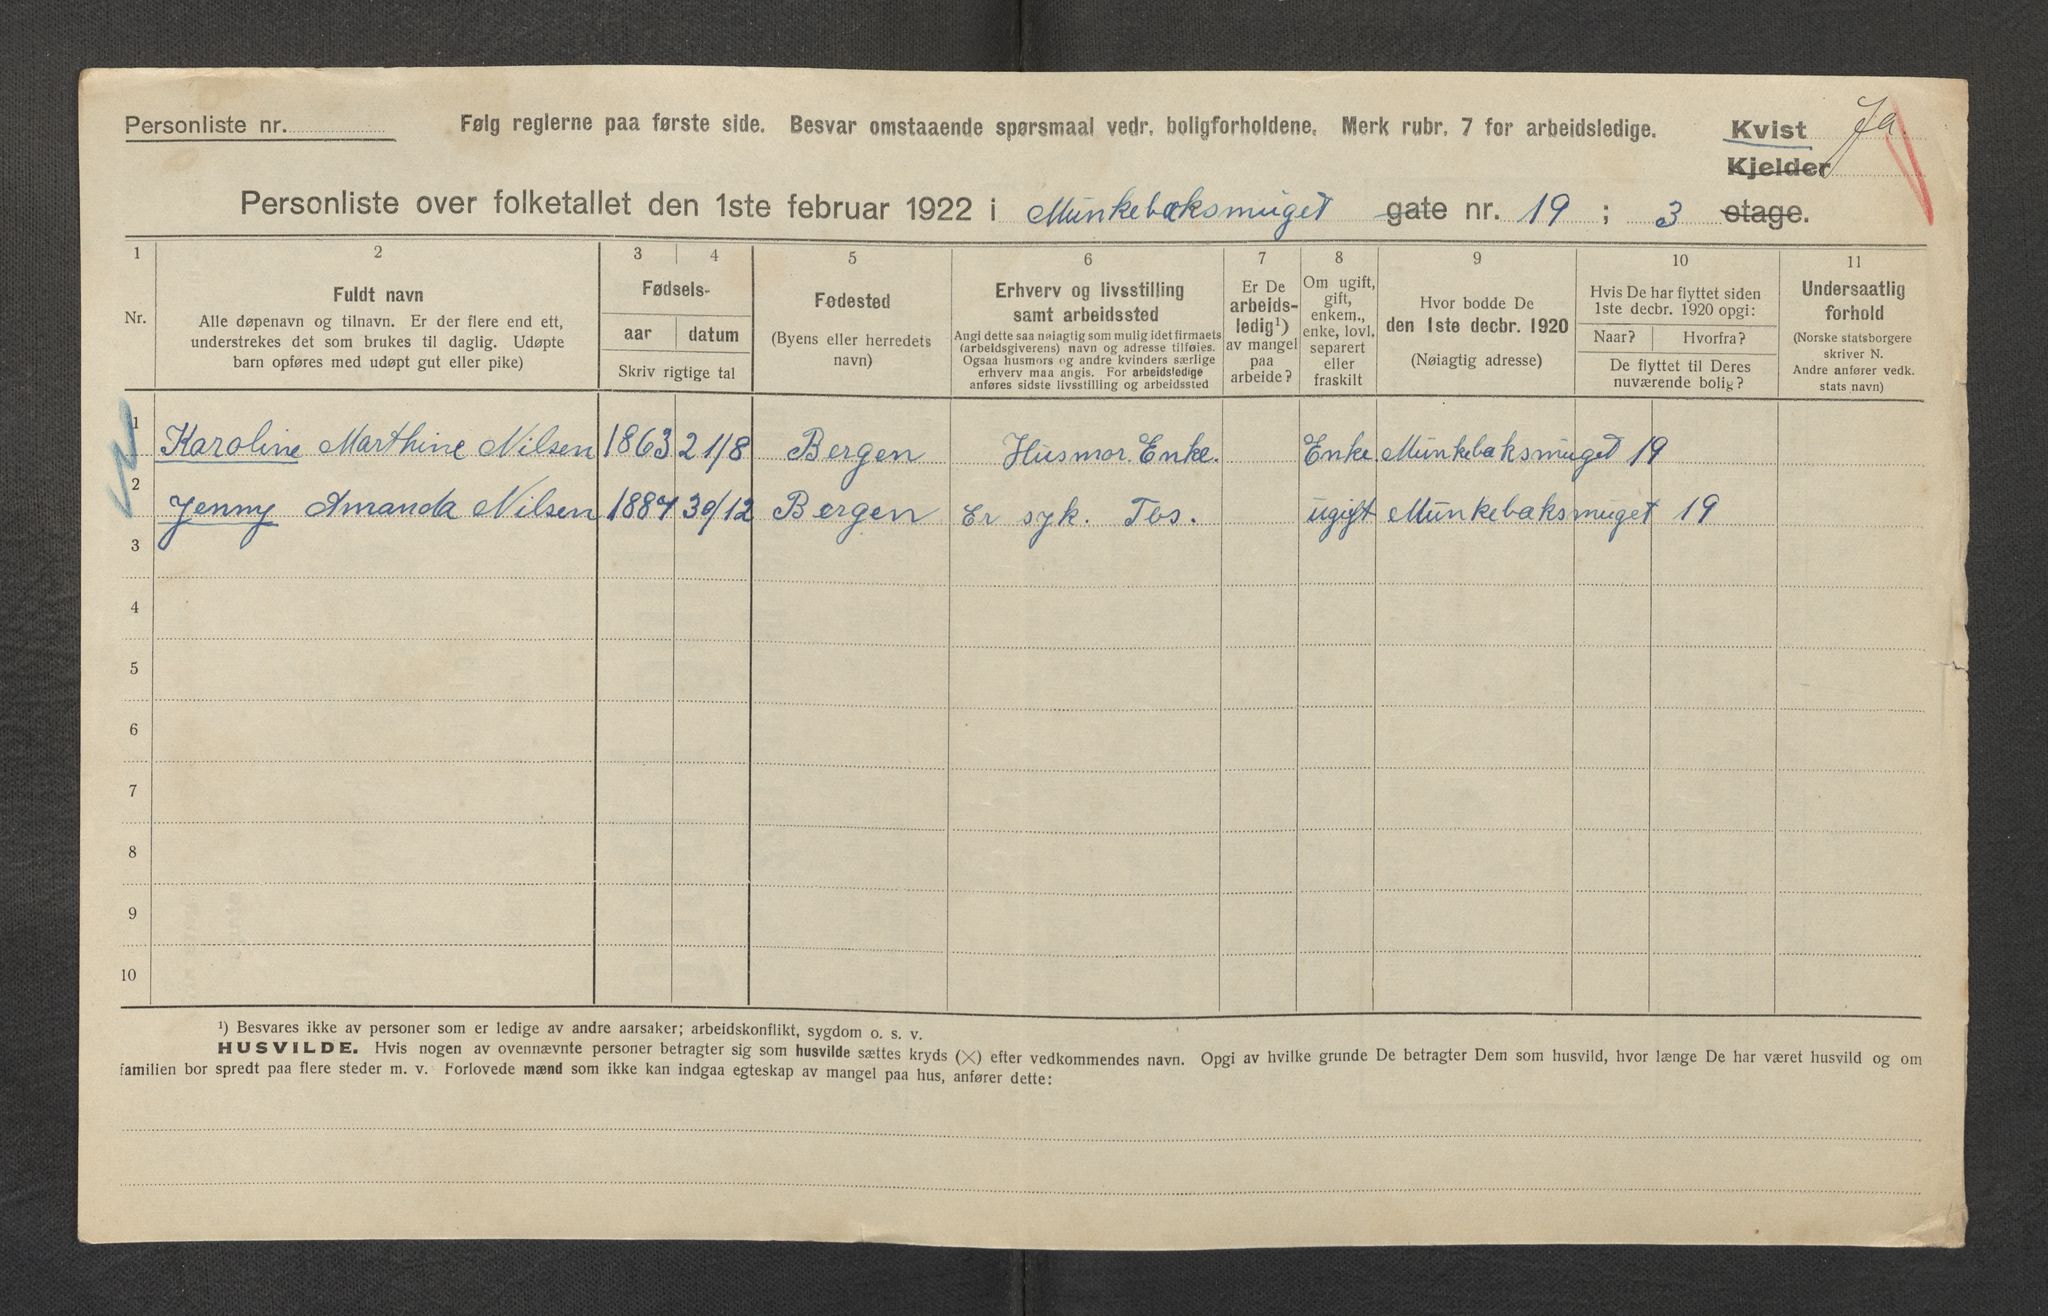 Personliste nr. Følg reglerne paa første side. Besvar omstaaende spørsmaal vedr. boligforholdene. Merk rubr. 7 for arbeidsledige. Kvist Ja
Kjelder
Personliste over folketallet den 1ste februar 1922 i Munkebæksmuget gate nr. 19 ; 3 etage.
1 2 3 4 5 6 7 8 9 10 11
Nr.
Fuldt navn
Alle døpenavn og tilnavn. Er der flere end ett,
understrekes det som brukes til daglig. Udøpte
barn opføres med udøpt gut eller pike)
Fødsels-
aar datum
Skriv rigtige tal
Fødested
(Byens eller herredets
navn)
Erhverv og livsstilling
samt arbeidssted
Angi dette saa nøiagtig som mulig idet firmaets
(arbeidsgiverens) navn og adresse tilføies.
Ogsaa husmors og andre kvinders særlige
erhverv maa angis. For arbeidsledige
anføres sidste livsstilling og arbeidssted
Er De
arbeids-
ledig¹)
av mangel
paa
arbeide?
Om ugift,
gift,
enkem.,
enke, lovl.
separert
eller
fraskilt
Hvor bodde De
den 1ste decbr. 1920
(Nøiagtig adresse)
Hvis De har flyttet siden
1ste decbr. 1920 opgi:
Naar? Hvorfra?
De flyttet til Deres
nuværende bolig?
Undersaatlig
forhold
(Norske statsborgere
skriver N.
Andre anfører vedk.
stats navn)
1 Karoline Marthine Nilsen 1863 21/8 Bergen Husmor. Enke. Enke. Munkebæksmuget 19
2 Jenny Amanda Nilsen 1887 30/12 Bergen Er syk. Tbs. ugift Munkebæksmuget 19
3
4
5
6
7
8
9
10
¹) Besvares ikke av personer som er ledige av andre aarsaker; arbeidskonflikt, sygdom o. s. v.
HUSVILDE. Hvis nogen av ovennævnte personer betragter sig som husvilde sættes kryds (×) efter vedkommendes navn. Opgi av hvilke grunde De betragter Dem som husvild, hvor længe De har været husvild og om
familien bor spredt paa flere steder m. v. Forlovede mænd som ikke kan indgaa egteskap av mangel paa hus, anfører dette: